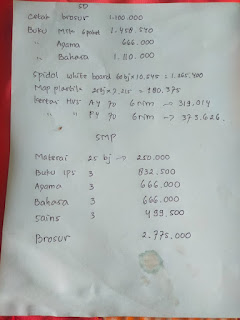 SD
Cetak brosur 1.100.000
Buku MTK 6 paket 2.458.540
" Agama 666.000
" Bahasa 1.110.000
Spidol white board 120 bj x 10.545 = 1.265.400
Map plastik 20 bj x 9.215 = 180.375
Kertas HVS A4 70 6 rim → 319.014
" " F4 70 6 rim → 373.626.
SMP
Materai 25 bj → 250.000
Buku IPS 3 832.500
Agama 3 666.000
Bahasa 3 666.000
Sains 3 499.500
Brosur 2.775.000